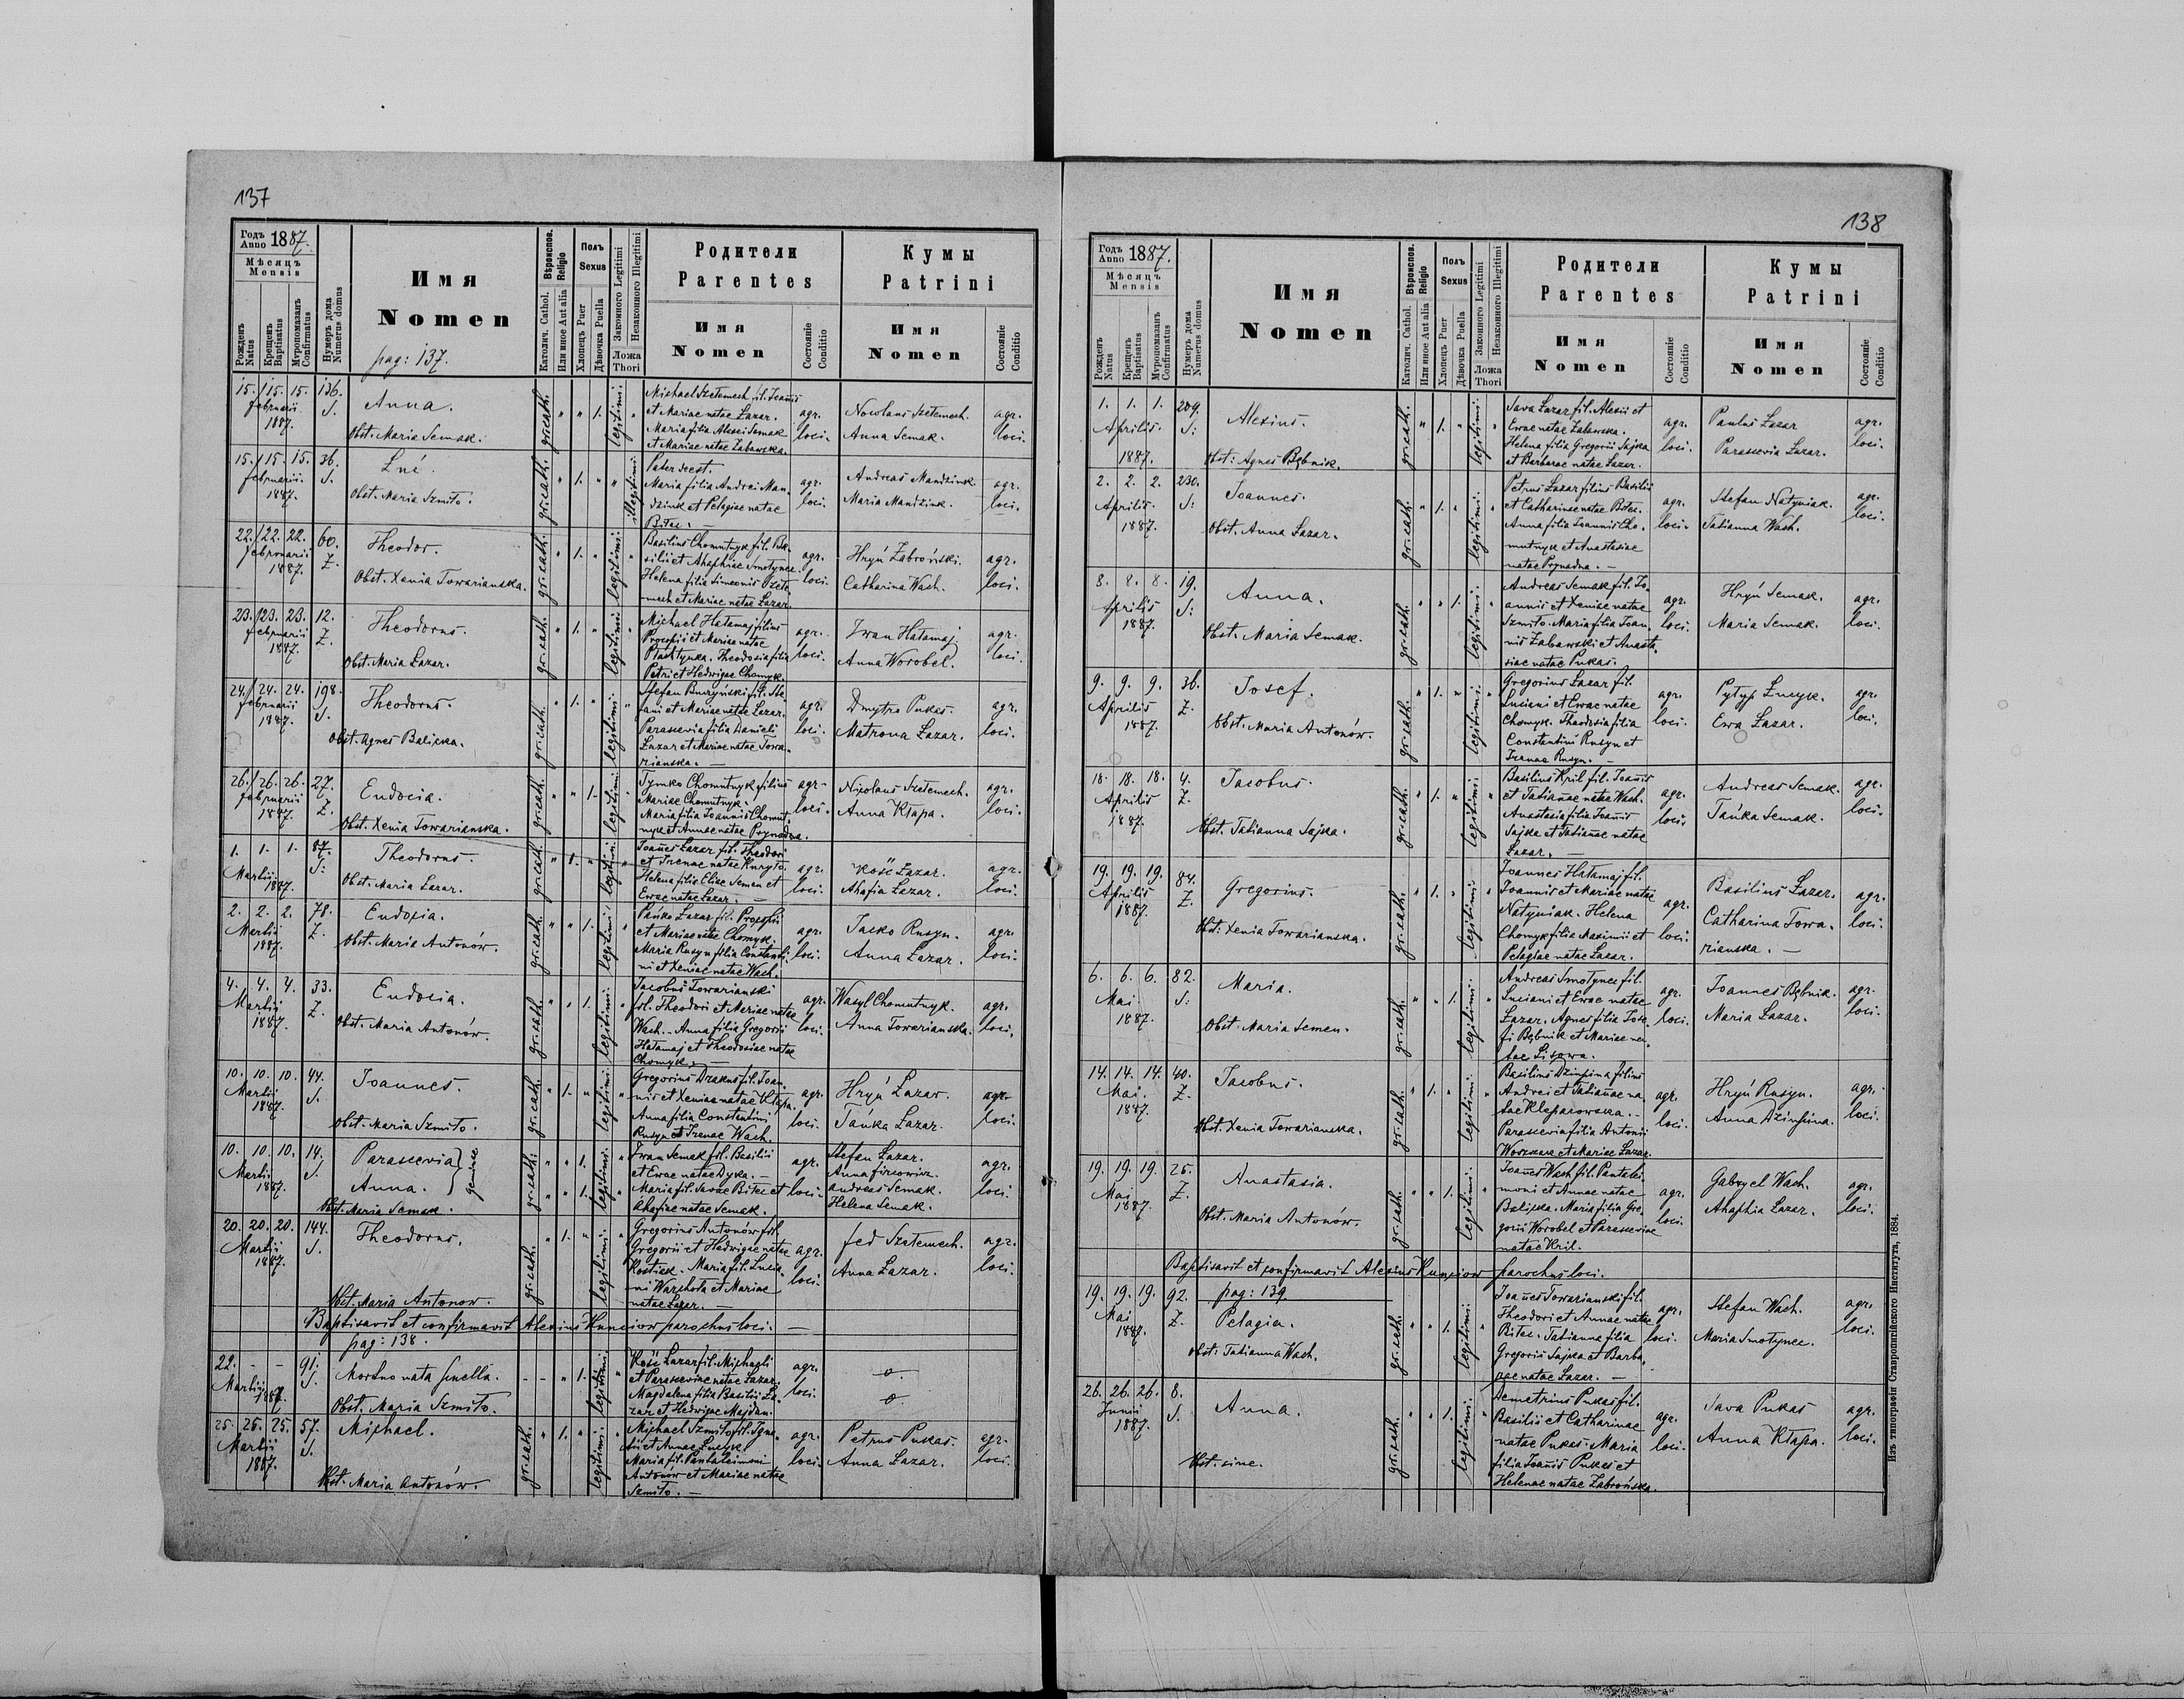 137
Годъ Anno 1887.
Мѣсяцъ Mensis
Рожденъ Natus
Крещенъ Baptisatus
Мѵропомазанъ Confirmatus
Нумеръ дома Numerus domus
Имя Nomen
pag: 137.
Вѣроиспов. Religio
Католич. Cathol.
Или иное Aut alia
Полъ Sexus
Хлопецъ Puer
Дѣвочка Puella
Законного Legitimi
Незаконного Illegitimi
Ложа Thori
Родители Parentes
Имя Nomen
Состояніе Conditio
Кумы Patrini
Имя Nomen
Состояніе Conditio
15. 15. 15. februarii 1887. 136. S.
Anna.
Obst. Maria Semak.
gr. cath. " " 1. legitimi. "
Michael Szetemech fil. Joannis
et Mariae natae Lazar.
Maria filia Alexei Semak
et Mariae natae Zabawska.
agr. loci.
Nicolaus Szetemech.
Anna Semak.
agr. loci.
15. 15. 15. februarii 1887. 36. S.
Luc.
Obst. Maria Szmito.
gr. cath. " 1. " " illegitimi.
Pater deest.
Maria filia Andrei Man-
dziuk et Pelagiae natae
Bitec. —
agr. loci.
Andreas Mandziuk
Maria Mandziuk.
agr. loci.
22. 22. 22. februarii 1887. 60. Z.
Theodor.
Obst. Xenia Towarianska.
gr. cath. " 1. " legitimi. "
Basilius Chomutnyk fil. Ba-
silii et Ahaphiae Smotynec.
Helena filia Simeonis Szete-
mech et Mariae natae Lazar.
agr. loci.
Hryń Zabroński.
Catharina Wach.
agr. loci.
23. 23. 23. februarii 1887. 12. Z.
Theodorus.
Obst. Maria Lazar.
gr. cath. " 1. " legitimi. "
Michael Hatamaj filius
Procopii et Mariae natae
Ptachtynka. Theodosia filia
Petri et Hedwigae Chomyk.
agr. loci.
Iwan Hatamaj
Anna Worobel.
agr. loci.
24. 24. 24. februarii 1887. 198. S.
Theodorus.
Obst. Agnes Balicka.
gr. cath. " 1. " legitimi. "
Stefan Buczyński fil. Ste-
fani et Mariae natae Lazar.
Parascevia filia Danieli
Lazar et Mariae natae Towa-
rianska. —
agr. loci.
Dmytro Pukas.
Matrona Lazar.
agr. loci.
26. 26. 26. februarii 1887. 27. Z.
Eudocia.
Obst. Xenia Towarianska.
gr. cath. " " 1. legitimi. "
Tymko Chomutnyk filius
Mariae Chomutnyk.
Maria filia Joannis Chomut-
nyk et Annae natae Prynadna.
agr. loci.
Nicolaus Szetemech.
Anna Kłapa.
agr. loci.
1. 1. 1. Martii 1887. 87. S:
Theodorus.
Obst. Maria Lazar.
gr. cath. " 1. " legitimi. "
Joañes Lazar fil. Theodori
et Irenae natae Kuryło.
Helena filia Eliae Seman et
Ewae natae Lazar. —
agr. loci.
Kość Lazar.
Ahafia Lazar.
agr. loci.
2. 2. 2. Martii 1887. 78. Z.
Eudocia.
Obst. Maria Antonów.
gr. cath. " " 1. legitimi. "
Pańko Lazar fil. Procopii
et Mariae natae Chomyk.
Maria Rusyn filia Constanti-
ni et Xeniae natae Wach.
agr. loci.
Jacko Rusyn.
Anna Lazar.
agr. loci.
4. 4. 4. Martii 1887. 33. Z.
Eudocia.
Obst. Maria Antonów.
gr. cath. " " 1. legitimi. "
Jacobus Towarianski
fil. Theodori et Mariae natae
Wach. - Anna filia Gregorii
Hatamaj et Theodosiae natae
Chomyk. —
agr. loci.
Wasyl Chomutnyk.
Anna Towarianska.
agr. loci.
10. 10. 10. Martii 1887. 44. S.
Joannes.
Obst. Maria Szmito.
gr. cath. " 1. " legitimi. "
Gregorius Drakus fil. Joan-
nis et Xeniae natae Kłapa.
Anna filia Constantini
Rusyn et Irenae Wach.
agr. loci.
Hryń Lazar.
Tańka Lazar.
agr. loci.
10. 10. 10. Martii 1887. 14. S.
Parascevia
Anna. } geminae
Obst. Maria Semak.
gr. cath. " " 1. " " 1. legitimi. "
Iwan Semak fil. Basilii
et Ewae natae Dyka. —
Maria fil. Savae Bitec et
Ahafiae natae Semak.
agr. loci.
Stefan Lazar.
Anna fircowicz.
Andreas Semak.
Helena Semak.
agr. loci.
20. 20. 20. Martii 1887. 144. S.
Theodorus.
Obst. Maria Antonow.
gr. cath. " 1. " legitimi. "
Gregorius Antonów fil.
Gregorii et Hedwigae natae
Kostiuk. Maria fil. Lucia-
ni Warchoła et Mariae
natae Lazar. —
agr. loci.
fed Szetemech.
Anna Lazar.
agr. loci.
Baptisavit et confirmavit Alexius Kunciow parochus loci. —
pag: 138.
22. - - Martii 1887. 91. S.
Mortuo nata puella.
Obst. Maria Szmito.
- - " 1. legitimi.
Kość Lazar fil. Michaeli
et Parasceviae natae Lazar.
Magdalena filia Basilii La-
zar et Hedwigae Majdan.
agr. loci.
o.
o.
25. 25. 25. Martii 1887. 57. S.
Michael.
Obst. Maria Antonów.
gr. cath. " 1. " legitimi. "
Michael Szmito fil. Igna-
tii et Annae Lucyk.
Maria fil. Pantaleimoni
Antonów et Mariae natae
Szmito. —
agr. loci.
Petrus Pukas.
Anna Lazar.
agr. loci.
138
Годъ Anno 1887.
Мѣсяцъ Mensis
Рожденъ Natus
Крещенъ Baptisatus
Мѵропомазанъ Confirmatus
Нумеръ дома Numerus domus
Имя Nomen
Вѣроиспов. Religio
Католич. Cathol.
Или иное Aut alia
Полъ Sexus
Хлопецъ Puer
Дѣвочка Puella
Законного Legitimi
Незаконного Illegitimi
Ложа Thori
Родители Parentes
Имя Nomen
Состояніе Conditio
Кумы Patrini
Имя Nomen
Состояніе Conditio
1. 1. 1. Aprilis. 1887. 209. S:
Alexius.
Obst: Agnes Bębnik.
gr. cath. " 1. " legitimi. "
Sava Lazar fil. Alexii et
Ewae natae Zabawska.
Helena filia Gregorii Sajka
et Barbarae natae Lazar.
agr. loci.
Paulus Lazar
Parascevia Lazar.
agr. loci.
2. 2. 2. Aprilis. 1887. 230. S:
Joannes.
Obst. Anna Lazar.
gr. cath. " 1. " legitimi. "
Petrus Lazar filius Basilii
et Catharinae natae Bitec.
Anna filia Joannis Cho-
mutnyk et Anastasiae
natae Prynadna. —
agr. loci.
Stefan Natyniak.
Tatianna Wach.
agr. loci.
8. 8. 8. Aprilis 1887. 19. S:
Anna.
Obst. Maria Semak.
gr. cath. " " 1. legitimi. "
Andreas Semak fil. Jo-
annis et Xeniae natae
Szmito. Maria filia Joan-
nis Zabawski et Anasta-
siae natae Pukas.
agr. loci.
Hryń Semak.
Maria Semak.
agr. loci.
9. 9. 9. Aprilis 1887. 36. Z.
Josef.
Obst. Maria Antonów.
gr. cath. " 1. " legitimi. "
Gregorius Lazar fil.
Luciani et Ewae natae
Chomyk. Theodosia filia
Constantini Rusyn et
Irenae Rusyn. —
agr. loci.
Pyłyp Lucyk.
Ewa Lazar.
agr. loci.
18. 18. 18. Aprilis 1887. 4. Z.
Jacobus.
Obst. Tatianna Sajka.
gr. cath. " 1. " legitimi. "
Basilius Kril fil. Joañis
et Tatiañae natae Wach.
Anastasia filia Joañis
Sajka et Tatiañae natae
Lazar. —
agr. loci.
Andreas Semak.
Tańka Semak.
agr. loci.
19. 19. 19. Aprilis 1887. 84. Z.
Gregorius.
Obst: Xenia Towarianska.
gr. cath. " 1. " legitimi. "
Joannes Hatamaj fil.
Joannis et Mariae natae
Natyniak. Helena
Chomyk filia Maximii et
Pelagiae natae Lazar.
agr. loci.
Basilius Lazar.
Catharina Towa-
rianska. —
agr. loci.
6. 6. 6. Mai 1887. 82. S:
Maria.
Obst. Maria Semen.
gr. cath. " " 1. legitimi. "
Andreas Smotynec fil.
Luciani et Ewae natae
Lazar. Agnes filia Jose-
fi Bębnik et Mariae na-
tae Lisowa.
agr. loci.
Joannes Bębnik.
Maria Lazar.
agr. loci.
14. 14. 14. Mai. 1887. 40. Z.
Jacobus.
Obst. Xenia Towarianska.
gr. cath. " 1. " legitimi. "
Basilius Dziupina filius
Andrei et Tatiañae na-
tae Kleparowska. -
Parascevia filia Antonii
Worszczara et Mariae Lazar.
agr. loci.
Hryń Rusyn.
Anna Dziupina.
agr. loci.
19. 19. 19. Mai 1887. 25. Z.
Anastasia.
Obst. Maria Antonów.
gr. cath. " " 1. legitimi. "
Joañes Wach fil. Pantalei-
moni et Annae natae
Balicka. Maria filia Gre-
gorii Worobel et Parasceviae
natae Kril.
agr. loci.
Gabryel Wach.
Ahaphia Lazar.
agr. loci.
Baptisavit et confirmavit Alexius Kunciow parochus loci.
pag: 139
19. 19. 19. Mai 1887. 92. Z.
Pelagia.
Obst: Tatianna Wach.
gr. cath. " " 1. legitimi. "
Joañes Towarianski fil.
Theodori et Annae natae
Bitec. Tatianna filia
Gregorii Sajka et Barba-
rae natae Lazar. —
agr. loci.
Stefan Wach.
Maria Smotynec.
agr. loci.
26. 26. 26. Junii 1887. 8. S.
Anna.
Obst. sine.
gr. cath. " " 1. legitimi. "
Demetrius Pukas fil.
Basilii et Catharinae
natae Pukas. Maria
filia Joañis Pukas et
Helenae natae Zabrońska.
agr. loci.
Sava Pukas
Anna Kłapa.
agr. loci.
Изъ типографіи Ставропигійского Института, 1884.